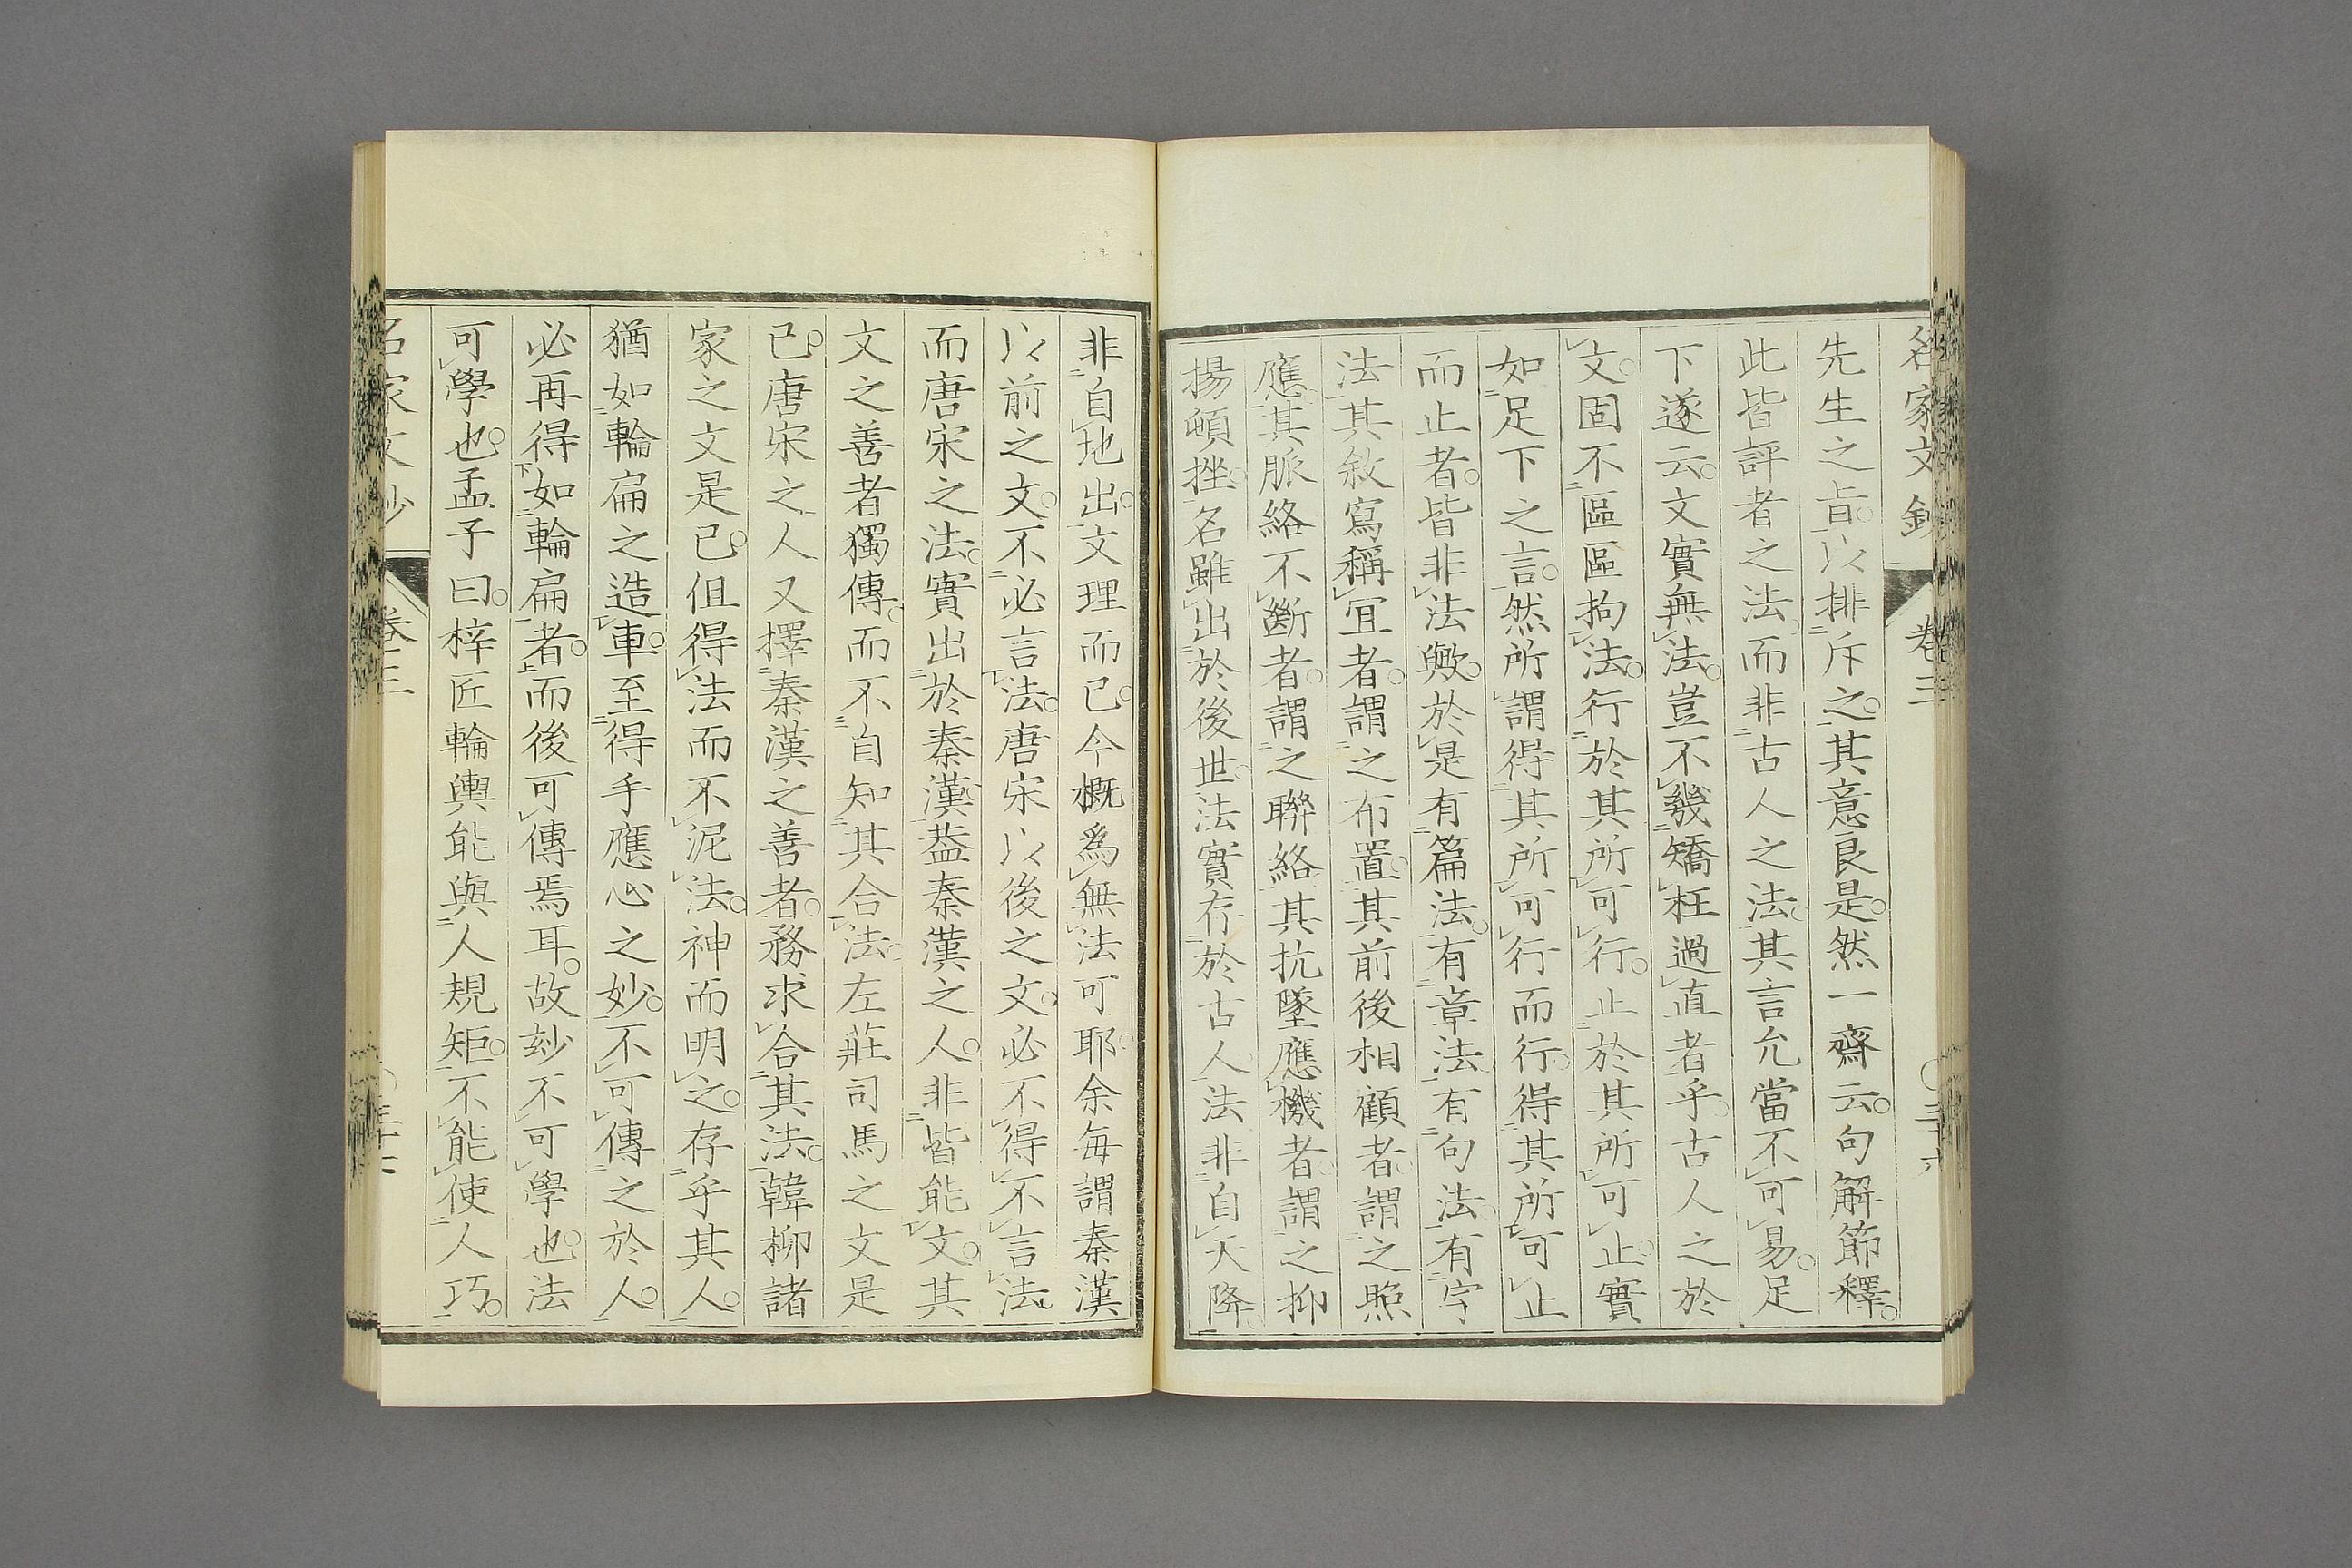 名家文鈔 卷三
先生之旨以排斥之其意良是然一齋云句解節釋
此皆評者之法而非古人之法其言允當不可易足
下遂云文實無法豈不幾矯枉過直者乎古人之於
文固不區區拘法行於其所可行止於其所可止實
如足下之言然所謂得其所可行而行得其所可止
而止者皆非法歟於是有篇法有章法有句法有字
法其敘寫稱宜者謂之布置其前後相顧者謂之照
應其脈絡不斷者謂之聯絡其抗墜應機者謂之抑
揚頓挫名雖出於後世法實存於古人法非自天降
非自地出文理而已今概爲無法可耶余每謂秦漢
以前之文不必言法唐宋以後之文必不得不言法
而唐宋之法實出於秦漢葢秦漢之人非皆能文其
文之善者獨傳而不自知其合法左莊司馬之文是
已唐宋之人又擇秦漢之善者務求合其法韓柳諸
家之文是已但得法而不泥法神而明之存乎其人
猶如輪扁之造車至得手應心之妙不可傳之於人
必再得如輪扁者而後可傳焉耳故玅不可學也法
可學也孟子曰梓匠輪輿能與人規矩不能使人巧
名家文鈔 卷三